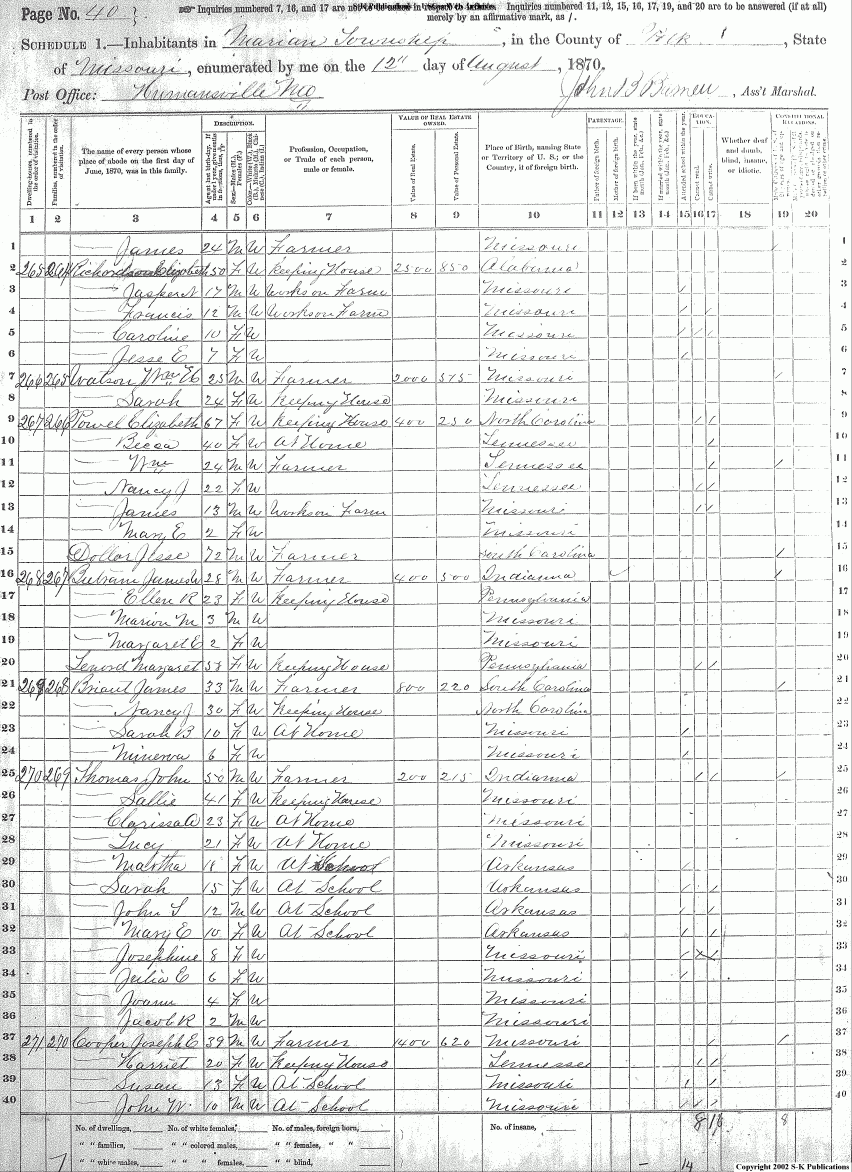 Page No. 40
Inquiries numbered 7, 16, and 17 are not Inquiries numbered 11, 12, 15, 16, 17, 19, and 20 are to be answered (if at all)
merely by an affirmative mark, as /.
SCHEDULE 1.—Inhabitants in Marian Township, in the County of Polk, State
of Missouri, enumerated by me on the 12" day of August, 1870.
Post Office: Humansville Mo John B , Ass't Marshal.
DESCRIPTION. VALUE OF REAL ESTATE OWNED. PARENTAGE. EDUCATION. CONSTITUTIONAL RELATIONS.
Dwelling-houses, numbered in the order of visitation.
Families, numbered in the order of visitation.
The name of every person whose place of abode on the first day of June, 1870, was in this family.
Profession, Occupation, or Trade of each person, male or female.
Value of Real Estate.
Value of Personal Estate.
Place of Birth, naming State or Territory of U. S.; or the Country, if of foreign birth.
Father of foreign birth.
Mother of foreign birth.
Attended school within the year.
Cannot read.
Cannot write.
Whether deaf and dumb, blind, insane, or idiotic.
1 2 3 4 5 6 7 8 9 10 11 12 13 14 15 16 17 18 19 20
1 — James 24 M W Farmer Missouri / 1
2 265 264 Richardson Elizabeth 50 F W Keeping House 2500 850 Alabama 2
3 — Jasper N 17 M W Works on Farm Missouri / 3
4 — Francis 12 M W Works on Farm Missouri / / 4
5 — Caroline 10 F W Missouri / / / 5
6 — Jesse E 7 F W Missouri / 6
7 266 265 Watson Wm 25 M W Farmer 2000 575 Missouri / 7
8 — Sarah 24 F W Keeping House Missouri 8
9 267 266 Powel Elizabeth 67 F W Keeping House 400 250 North Carolina / / 9
10 — 40 F W At Home Tennessee / 10
11 — Wm 24 M W Farmer Tennessee / / 11
12 — Nancy J 22 F W Tennessee / / 12
13 — James 13 M W Works on Farm Missouri / / 13
14 — Mary E 2 F W Missouri 14
15 Dollar Jesse 72 M W Farmer South Carolina / 15
16 268 267 Butram James W 28 M W Farmer 400 500 Indianna / / 16
17 — Ellen R 23 F W Keeping House Pennsylvania 17
18 — Marion M 3 M W Missouri 18
19 — Margaret E 2 F W Missouri 19
20 Lenord Margaret 53 F W Keeping House Pennsylvania / / 20
21 269 268 Briant James 33 M W Farmer 800 220 South Carolina / 21
22 — Nancy J 30 F W Keeping House North Carolina 22
23 — Sarah B 10 F W At Home Missouri / 23
24 — Minerva 6 F W Missouri / 24
25 270 269 Thomas John 50 M W Farmer 200 215 Indianna / / / 25
26 — Sallie 41 F W Keeping House Missouri 26
27 — Clarissa A 23 F W At Home Missouri 27
28 — Lucy 21 F W At Home Missouri 28
29 — Martha 18 F W At School Arkansas / 29
30 — Sarah 15 F W At School Arkansas / / 30
31 — John S 12 M W At School Arkansas / / 31
32 — Mary E 10 F W At School Arkansas / / 32
33 — Josephine 8 F W Missouri / x / 33
34 — Julia E 6 F W Missouri / 34
35 — Joann 4 F W Missouri 35
36 — Jacob R 2 M W Missouri 36
37 271 270 Cooper Joseph E 39 M W Farmer 1400 620 Missouri / 37
38 — Harriet 20 F W Keeping House Tennessee / / 38
39 — Susan 13 F W At School Missouri / / 39
40 — John W. 10 M W At School Missouri / / / 40
No. of dwellings, No. of white females, No. of males, foreign born, No. of insane, 8 16 8
" " families, " " colored males, " " females, " "
" " white males, " " " females, " " blind, 14
Copyright 2002 S-K Publications